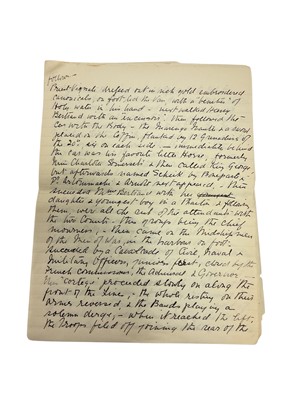 follow—
dressed out in rich gold embroidered
canonicals, on foot, led the Van, with a "benitier" of
Holy water in his hand — next walked Henry
Bertrand with an encensoir; then followed the
Car with the Body — the Mareng Mantle and sword
placed on the coffin, flanked by 12 Grenadiers of
the 20th, six on each side, — immediately behind
the Car was his favorite little Horse, formerly
then called King George
but afterwards named Scheik by
Dr Antommarchi & Arnott next appeared, — then
succeeded Mme Bertrand with her
daughter & youngest boy in a &
them, were all the rest of the attendants with
the two Counts — this group being the Chief
mourners; — then came on the Midshipmen
of the Men of War, in the harbour on foot.
succeeded by a of Civil, Naval &
Military Officers, juniors first, closed by the
French Commissioner, the Admiral & Governor
This cortege proceeded slowly on along the
front of the Line, — the whole resting on their
arms reversed & the Bands playing a
solemn dirge; — when it reached the left,
the Troops filed off joining the rear of the